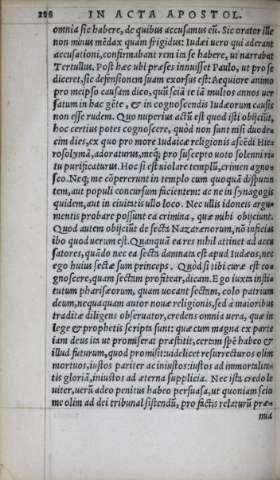 206 IN ACTA APOSTOL.
omnia sic habere, de quibus accusamus eū. Sic orator ille
non minus mēdax quam frigidus: Iudæi uero qui aderant
accusationi, confirmabant rem ita se habere, ut narrabat
Tertullus. Post hæc ubi præses innuisset Paulo, ut pro se
diceret, sic defensionem suam exorsus est: Aequiore animo
pro meipso causam dico, quū sciā te iā multos annos uer
satum in hac gēte, & in cognoscendis Iudæorum causis
non esse rudem. Quo nuperius actū est quod isti obijciūt,
hoc certius potes cognoscere, quòd non sunt nisi duode-
cim dies, ex quo pro more Iudaicæ religionis ascēdi Hie
rosolymā, adoraturus, meq; pro suscepto uoto solenni ri-
tu purificaturus. Hoc si est uiolare templū, crimen agno-
sco. Neq; me cōpererunt in templo cum quoquā disputan
tem, aut populi concursum facientem: ac ne in synagogis
quidem, aut in ciuitatis ullo loco. Nec ullis idoneis argu-
mentis probare possunt ea crimina, quæ mihi obijciunt.
Quod autem obijciūt de secta Nazarænorum, nō inficias
ibo quod uerum est. Quanquā ea res nihil attinet ad accu
satores, quādo nec ea secta damnata est apud Iudæos, nec
ego huius sectæ sum princeps. Quòd si tibi curæ est co-
gnoscere, quam sectam profitear, dicam. Ego iuxta insti-
tutum pharisæorum, quam uocant sectam, colo patrium
deum, nequaquam autor nouæ religionis, sed à maioribus
traditæ diligens obseruator, credens omnia uera, quæ in
lege & prophetis scripta sunt: quæ cum magna ex parte
iam deus ita ut promiserat præstitit, certam spē habeo &
illud futurum, quod promisit: uidelicet resurrecturos olim
mortuos, iustos pariter ac iniustos: iustos ad immortalita-
tis gloriā, iniustos ad æterna supplicia. Nec ista credo le
uiter, uerū adeo penitus habeo persuasa, ut quoniam scio
me olim ad dei tribunal sistendū, pro factis relaturū præ-
mia